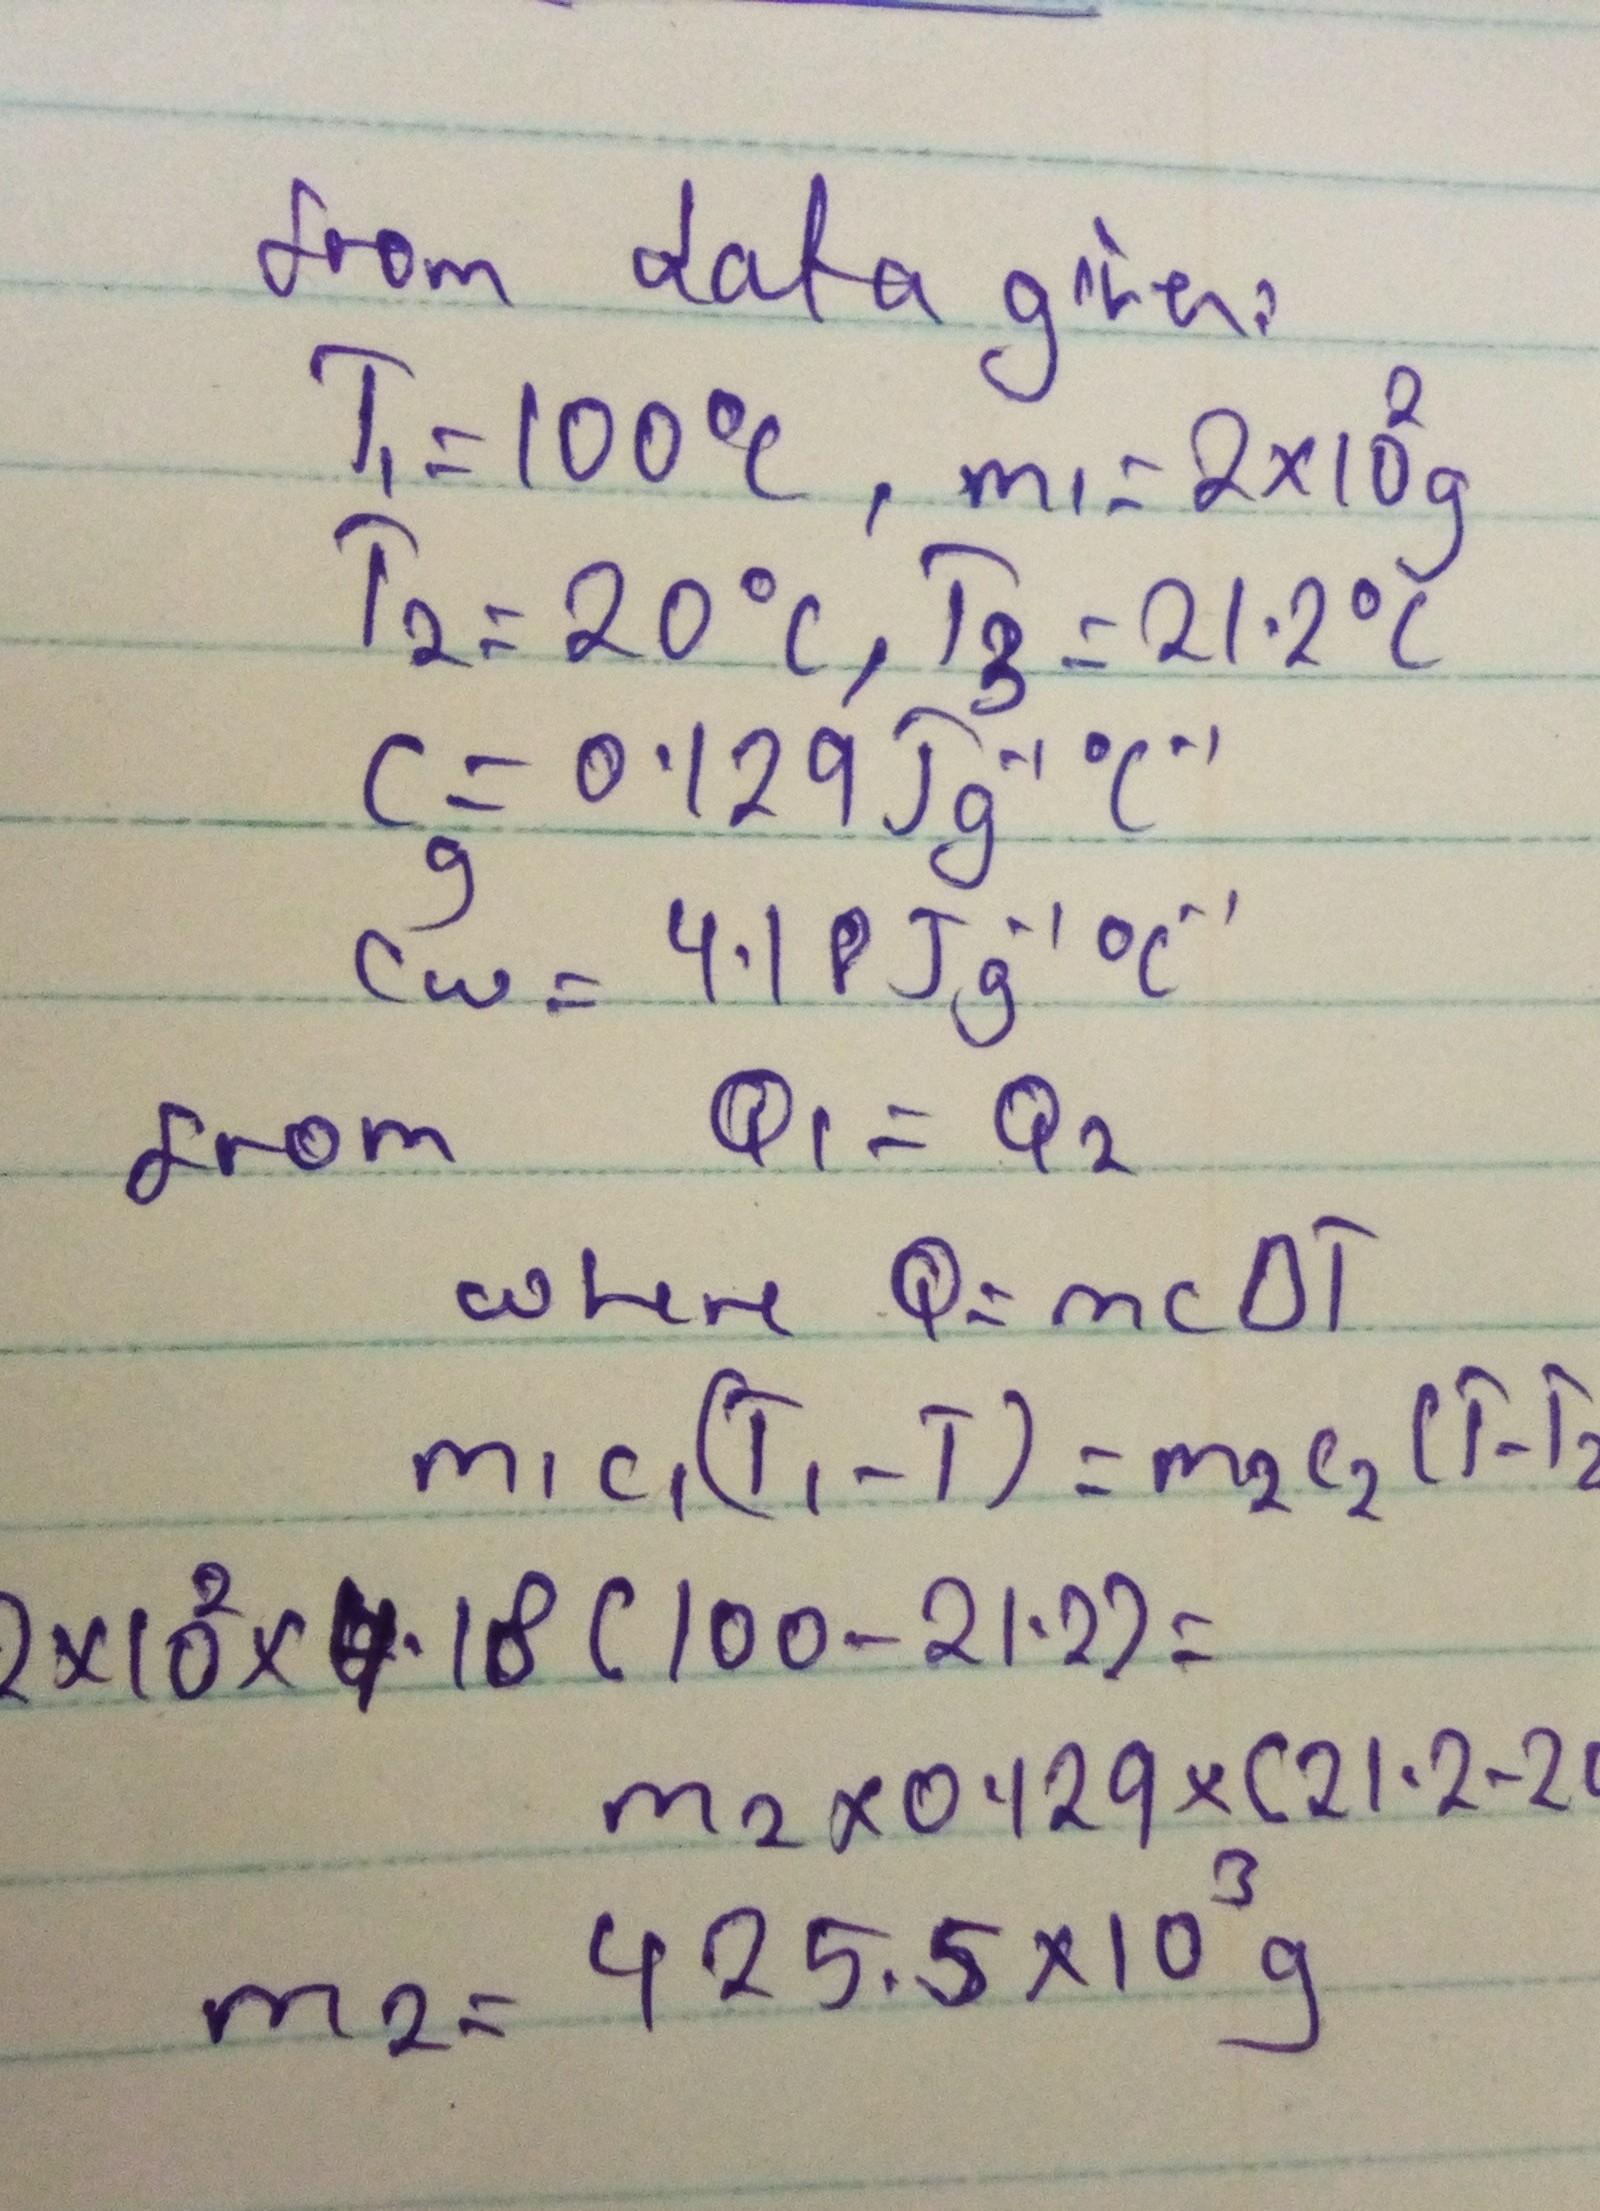 from data given:
T₁ = 100°C, m₁ = 2×10²g
T₂ = 20°C, T₃ = 21.2°C
Cg = 0.129 Jg⁻¹ °C⁻¹
Cw = 4.18 Jg⁻¹ °C⁻¹
from Q₁ = Q₂
where Q = mcΔT
m₁c₁(T₁-T) = m₂c₂(T-T₂
2×10²×4.18(100-21.2) =
m₂×0.129×(21.2-20
m₂ = 425.5×10³g